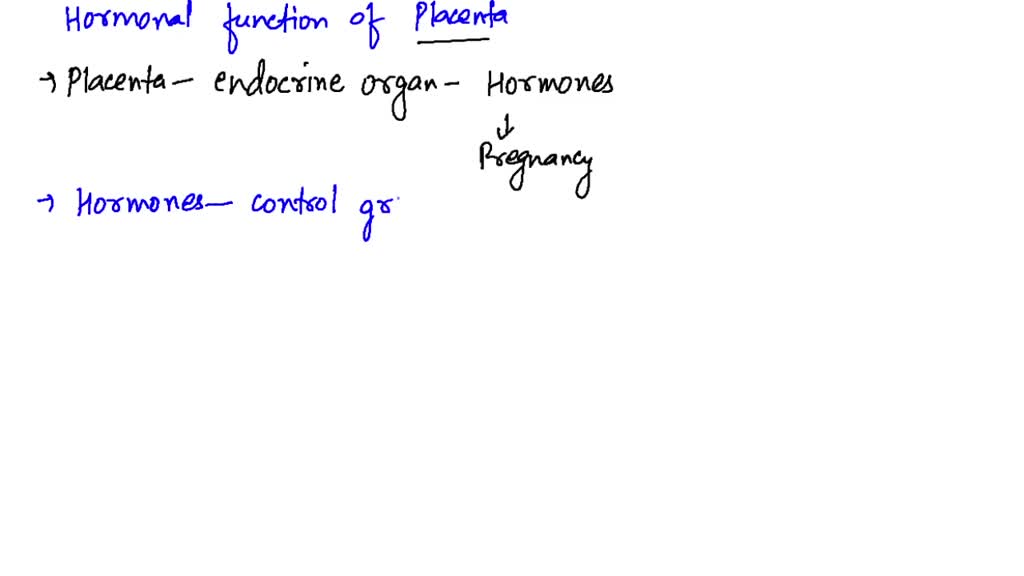 Hormonal function of Placenta
→ Placenta — endocrine organ — Hormones
↓
Pregnancy
→ Hormones — control gr